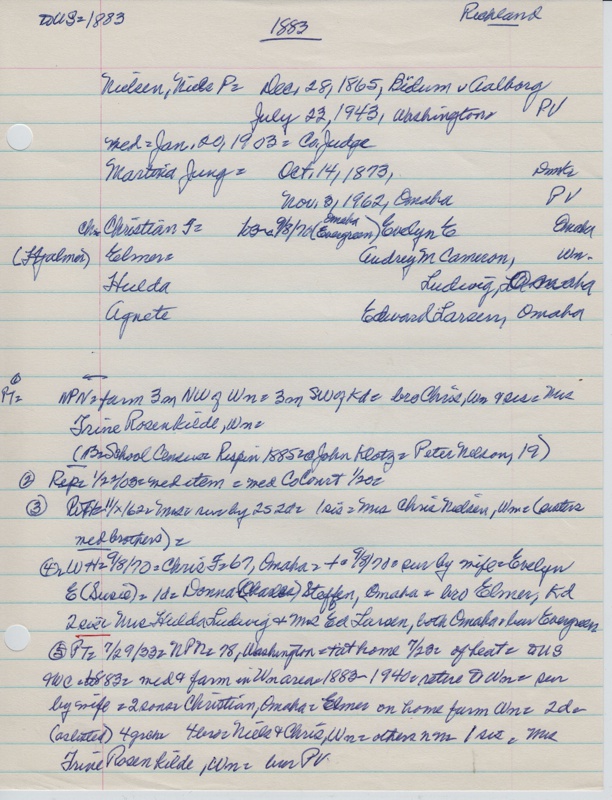 to US = 1883
1883
Richland
Nielsen, Niels P = Dec. 28, 1865, Bidum v Aalborg
July 23, 1943, Washington PV
med = Jan. 20, 1903 = Co. Judge
Martina Jung = Oct. 14, 1873,
Nov. 3, 1962, Omaha PV
ch = Christian F = 9/8/70 (Omaha Evergreen) Evelyn E Omaha
(Hjalmer) Elmer = Audrey M Cameron, Wn.
Hulda Ludwig, Omaha
Agnete Edward Larsen, Omaha
① PT = NPN = farm 3m NW of Wn = 3m SW of Kd = bro Chris, Wn & sis = Mrs
Trine Rosenkilde, Wn =
(NB = School Census Rispin 1885 = @ John Klotz = Peter Nelson, 19)
② Rep = 1/22/03 = med item = med Co Court 1/20 =
③ 11/ /62 = Mrs = sur by 2s 2d = 1 sis = Mrs Chris Nielsen, Wn = (sisters
med brothers) =
④ WH = 9/8/70 = Chris F = 67, Omaha = + 9/3/70 = sur by wife = Evelyn
E (Susie) = 1d = Donna (Charles) Steffen, Omaha = bro Elmer, Kd
2 sis = Mrs Hulda Ludwig & Mrs Ed Larsen, both Omaha = bur Evergreen
⑤ PT = 7/29/33 = NPN = 78, Washington = + at home 7/23 = of heat = to US
& WC = 1883 = med & farm in Wn area = 1883-1940 = retire to Wn = sur
by wife = 2 sons = Christian, Omaha = Elmer on home farm Wn = 2d =
(as listed) 4 gram 4 bros Niels & Chris, Wn = others nm = 1 sis = Mrs
Trine Rosenkilde, Wn = bur PV